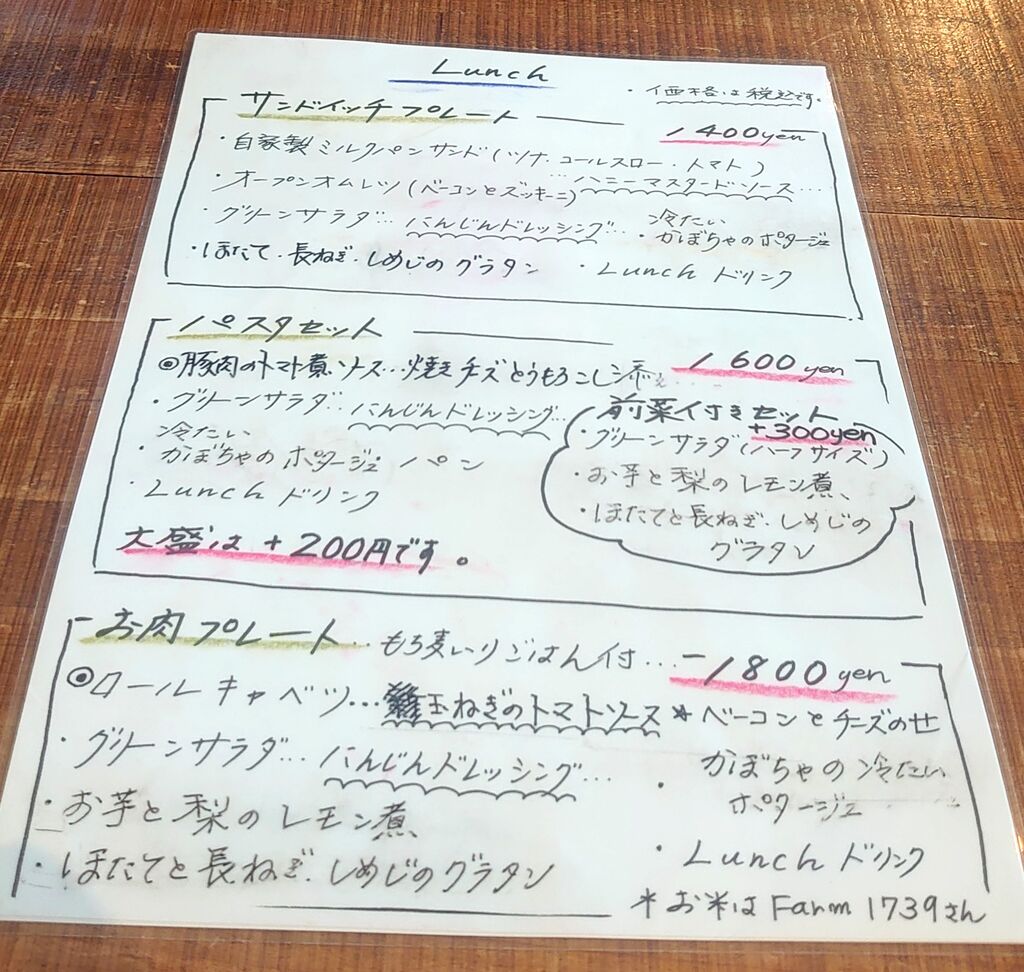 Lunch
・価格は税込です。
サンドイッチプレート
1400yen
・自家製ミルクパンサンド(ツナ.コールスロー・トマト)
・オープンオムレツ(ベーコンとズッキーニ)…ハニーマスタードソース…
・グリーンサラダ…にんじんドレッシング…
・冷たいかぼちゃのポタージュ
・ほたて.長ねぎ.しめじのグラタン
・Lunchドリンク
パスタセット
1600yen
◎豚肉のトマト煮ソース…焼きチーズとうもろこし添え…
・グリーンサラダ…にんじんドレッシング…
・冷たいかぼちゃのポタージュ パン
・Lunchドリンク
大盛は+200円です。
前菜付きセット
+300yen
・グリーンサラダ(ハーフサイズ)
・お芋と梨のレモン煮、
・ほたてと長ねぎ.しめじの
グラタン
お肉プレート…もち麦いりごはん付…
1800yen
◎ロールキャベツ…玉ねぎのトマトソース*ベーコンとチーズのせ
・グリーンサラダ…にんじんドレッシング…
・かぼちゃの冷たい
ポタージュ
・お芋と梨のレモン煮、
・ほたてと長ねぎ.しめじのグラタン
・Lunchドリンク
*お米はFarm1739さん